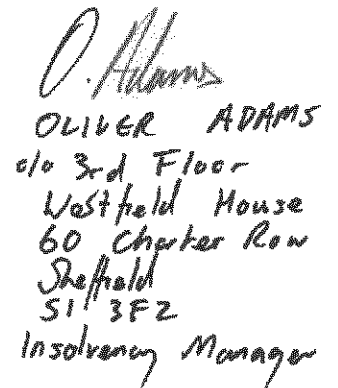 O. Adams
OLIVER ADAMS
c/o 3rd Floor
Westfield House
60 Charter Row
Sheffield
S1 3FZ
Insolvency Manager